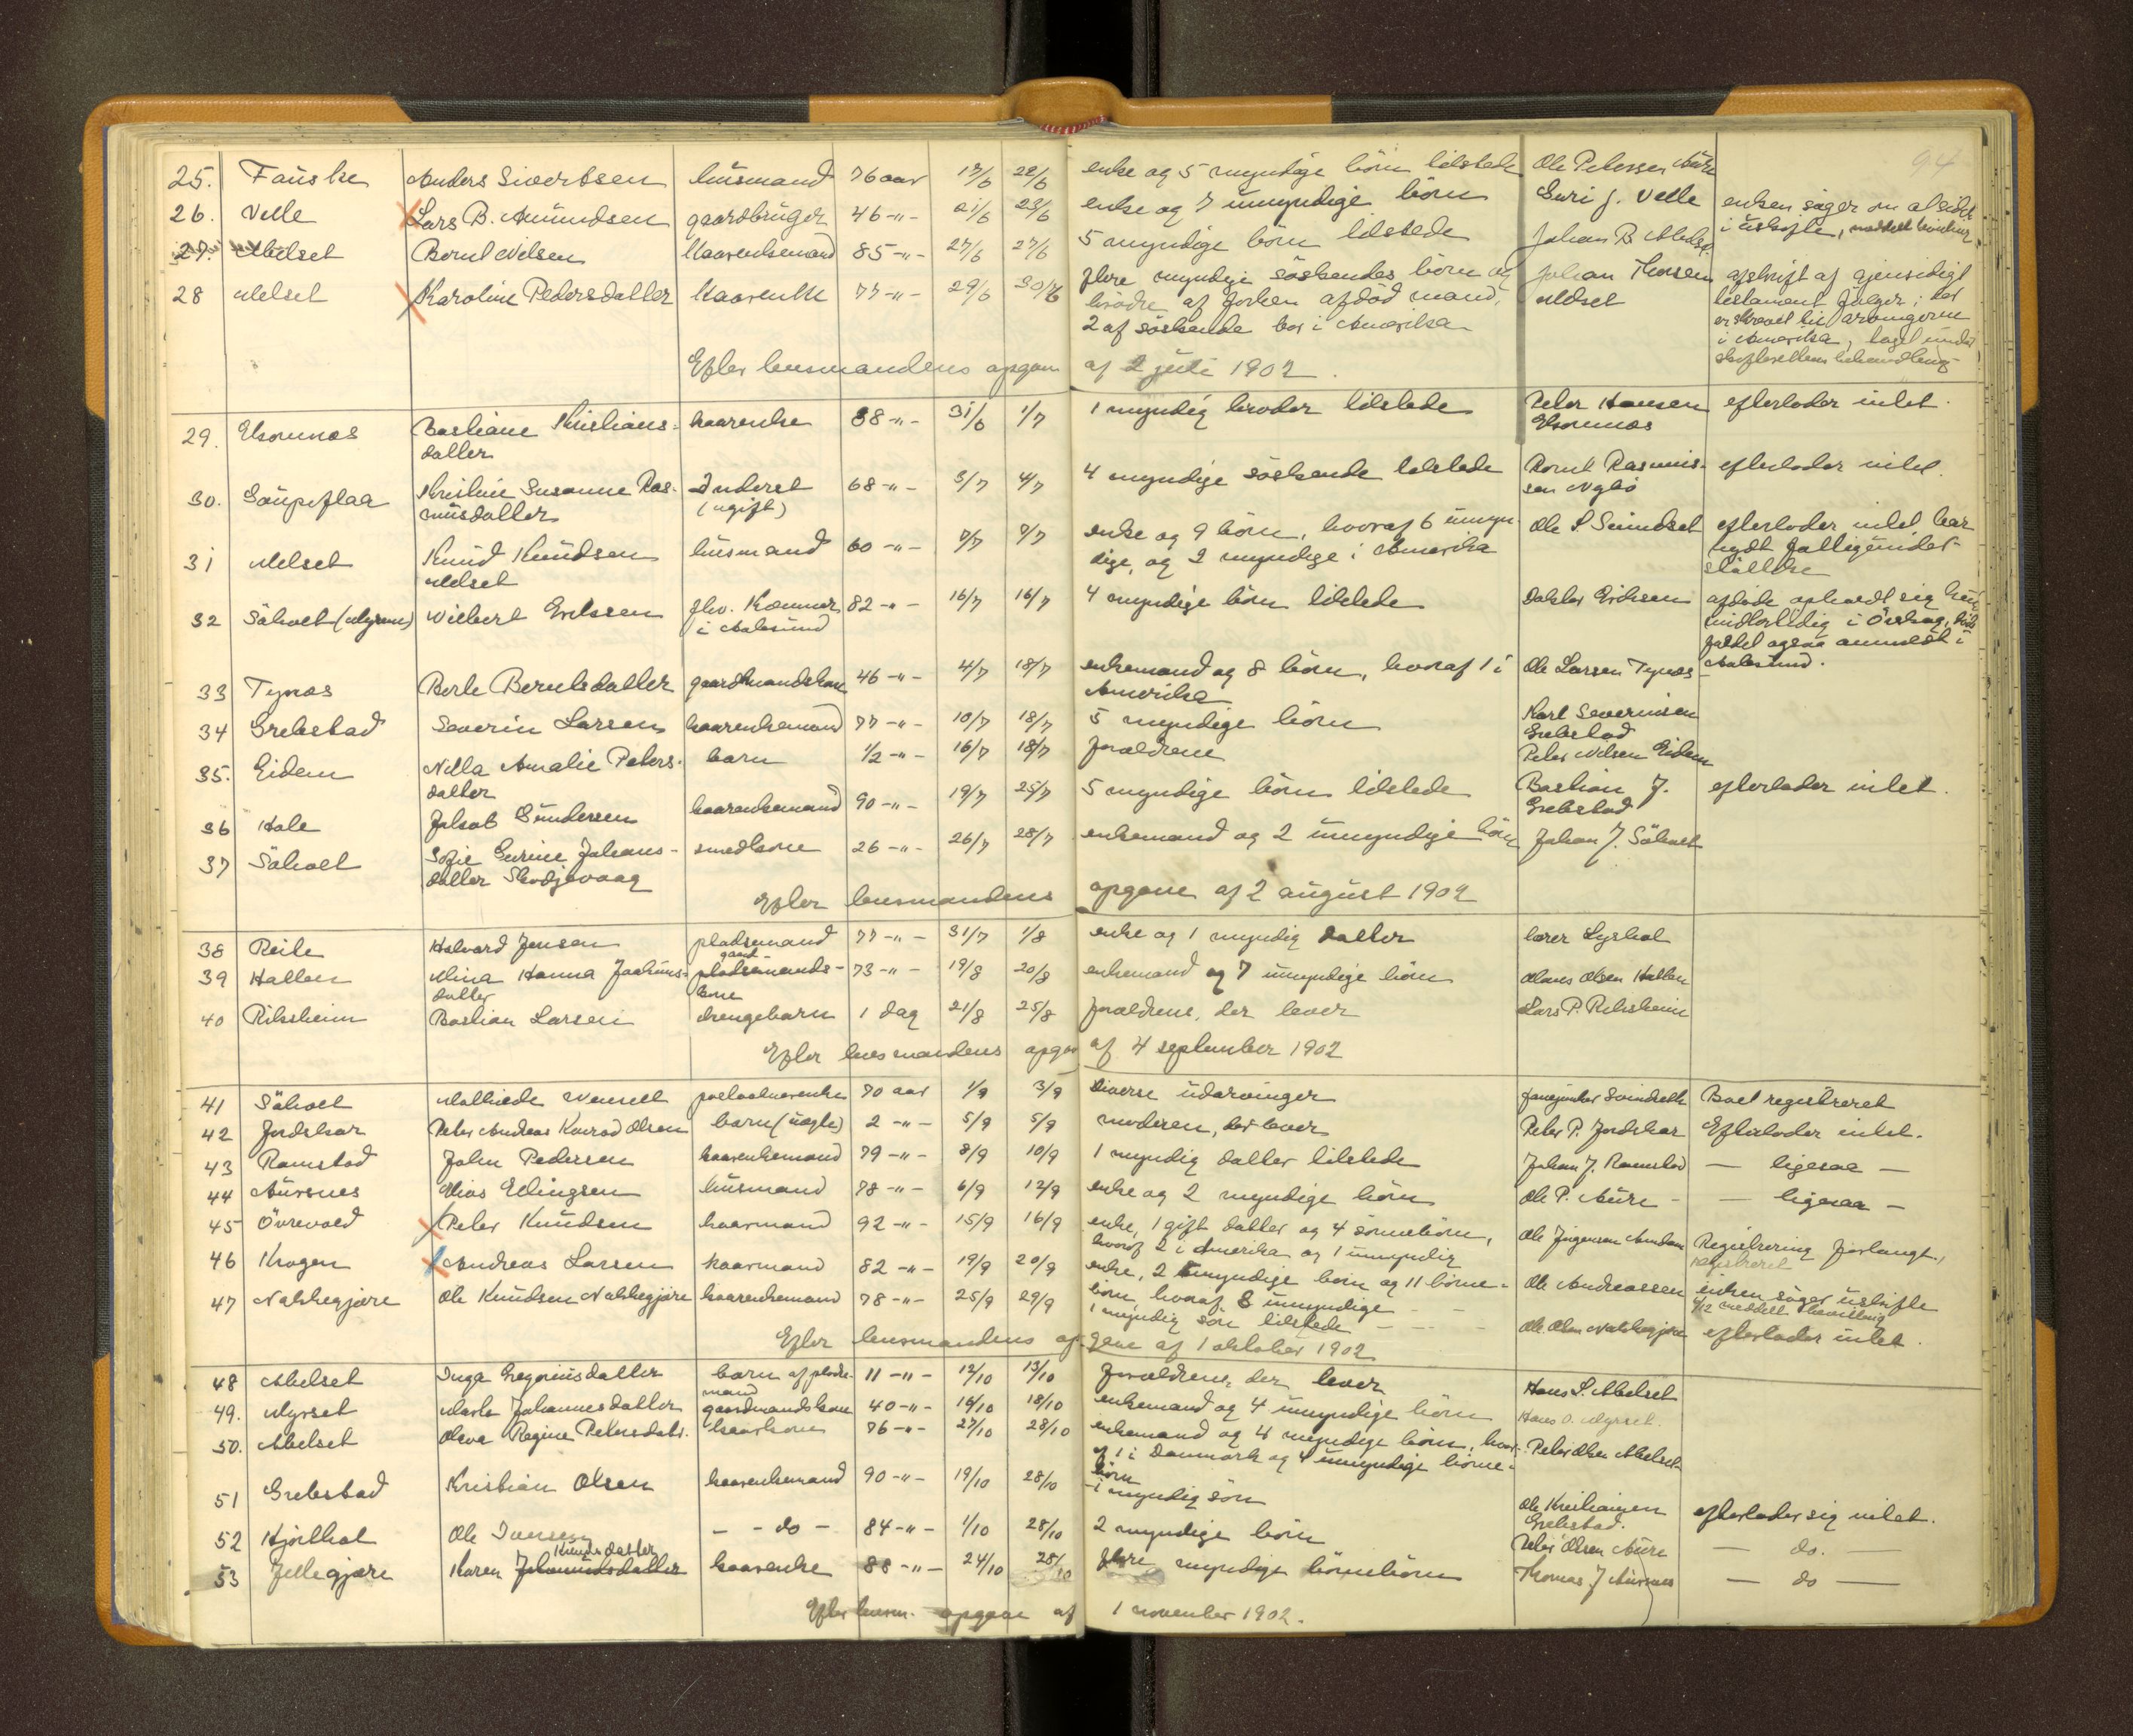 94
25. Fauske Anders Sivertsen husmand 76 aar 17/6 22/6 enke og 5 myndige börn tilstede Ole Petersen Aure
26. Velle Lars B. Amundsen gaardbruger 46 -"- 21/6 23/6 enke og 7 umyndige börn Guri J. Velle enken söger om at sidde
i uskifte, meddelt
27. Melset Bernt Nilsen kaarenkemand 85 -"- 27/6 27/6 5 myndige börn tilstede Johan B. Melset
28 Melset Karoline Pedersdatter kaarenke 77 -"- 29/6 30/6 flere myndige söskendes börn og Johan Thorsen afskrift af gjensidigt
brödre af forhen afdöd mand, Melset testament fölger; det
2 af söskende bor i Amerika er skrevet til arvingerne
i Amerika, taget under
skifterettens behandling
Efter lensmandens opgave af 2 juli 1902.
29. Ekornnes Bastiane Kristians- kaarenke 88 -"- 31/6 1/7 1 myndig broder tilstede Peter Hansen efterlader intet.
datter Ekornnes
30. Gaupeflaa Kristine Susanne Ras- Inderst 68 -"- 3/7 4/7 4 myndige söskende tilstede Bernt Rasmus- efterlader intet.
musdatter (ugift) sen Nybö
31 Melset Knud Knudsen husmand 60 -"- 8/7 9/7 enke og 9 börn, hvoraf 6 umyn- Ole S Svindset efterlader intet har
Melset dige, og 2 myndige i Amerika nydt fattigunder-
stöttelse
32 Söholt (Myren) Wilhelm Eriksen fhv. Kæmner 82 -"- 16/7 16/7 4 myndige börn tilstede Doktor Eriksen afdöde opholdt sig kun
i Aalesund midlertidig i Örskog, döds
faldet ogsaa anmeldt i
Aalesund.
33 Tynes Berte Berntsdatter gaardmandskone 46 -"- 4/7 18/7 enkemand og 8 börn, hvoraf 1 i Ole Larsen Tynes
Amerika
34 Grebstad Severin Larsen kaarenkemand 77 -"- 10/7 18/7 5 myndige börn Karl Severinsen
Grebstad
35. Eidem Nilla Amalie Peters- barn 1/2 -"- 16/7 18/7 forældrene Peter Nilsen Eidem
datter
36 Hole Jakob Gundersen kaarenkemand 90 -"- 19/7 25/7 5 myndige börn tilstede Bastian J. efterlader intet.
Grebstad
37 Söholt Sofie Gurine Johans- smedkone 26 -"- 26/7 28/7 enkemand og 2 umyndige börn Johan J. Söholt
datter Skodjevaag
Efter lensmandens opgave af 2 august 1902
38 Reite Halvard Jensen pladsemand 77 -"- 31/7 1/8 enke og 1 myndig datter lærer Lyshol
39 Hatlen Mina Hanna Joakims- gaard- 73 -"- 19/8 20/8 enkemand og 7 umyndige börn Olaus Olsen Hatlen
datter pladsemands-
kone
40 Riksheim Bastian Larsen drengebarn 1 dag 21/8 25/8 forældrene, der lever Lars P. Riksheim
Efter lensmandens opgave af 4 september 1902
41 Söholt Mathilde 70 aar 1/9 3/9 diverse udarvinger Svindseth Boet registreret
42 Jordskar Peter Andreas Konrad Olsen barn (uægte) 2 -"- 5/9 5/9 moderen, der lever Peter P. Jordskar Efterlader intet.
43 Ramstad John Pedersen kaarenkemand 79 -"- 8/9 10/9 1 myndig datter tilstede Johan J. Ramstad — ligesaa —
44 Aursnes Elias Ellingsen husmand 78 -"- 6/9 12/9 enke og 2 myndige börn Ole P. Aure — ligesaa —
45 Övrevold Peter Knudsen kaarmand 92 -"- 15/9 16/9 enke, 1 gift datter og 4 sönnebörn, Ole Jörgensen Amdam Registrering forlangt,
hvoraf 2 i Amerika og 1 umyndig registreret
46 Krogen Andreas Larsen kaarmand 82 -"- 19/9 20/9 enke, 2 myndige börn og 11 börne- Ole Andreassen enken söger uskifte
börn hvoraf 8 umyndige 4/12 meddelt bevilling
47 Nakkegjære Ole Knudsen Nakkegjære kaarenkemand 78 -"- 25/9 29/9 1 myndig sön tilstede Ole Olsen Nakkegjære efterlader intet.
Efter lensmandens opgave af 1 oktober 1902
48 Melset Inga Gregoriusdatter barn af pladse- 11 -"- 12/10 13/10 forældrene der lever Hans L. Melset
mand
49. Myrset Marte Johannesdatter gaardmandskone 40 -"- 14/10 18/10 enkemand og 4 umyndige börn Hans O. Myrset.
50. Melset Oleva Regine Petersdatr. kaarkone 76 -"- 27/10 28/10 enkemand og 4 myndige börn, hvor- Peter Olsen Melset
af 1 i Danmark og 4 umyndige börne-
börn
51 Grebstad Kristian Olsen kaarenkemand 90 -"- 19/10 28/10 1 myndig sön Ole Kristiansen efterlader sig intet.
Grebstad.
52 Hjorthol Ole Iversen - - do - 84 -"- 1/10 28/10 2 myndige börn Peter Olsen Aure — do. —
53 Jellegjære Karen Knudsdatter kaarenke 88 -"- 24/10 28/10 flere myndige börnebörn Thomas J Aursnes — do —
Efter lensm. opgave af 1 november 1902.